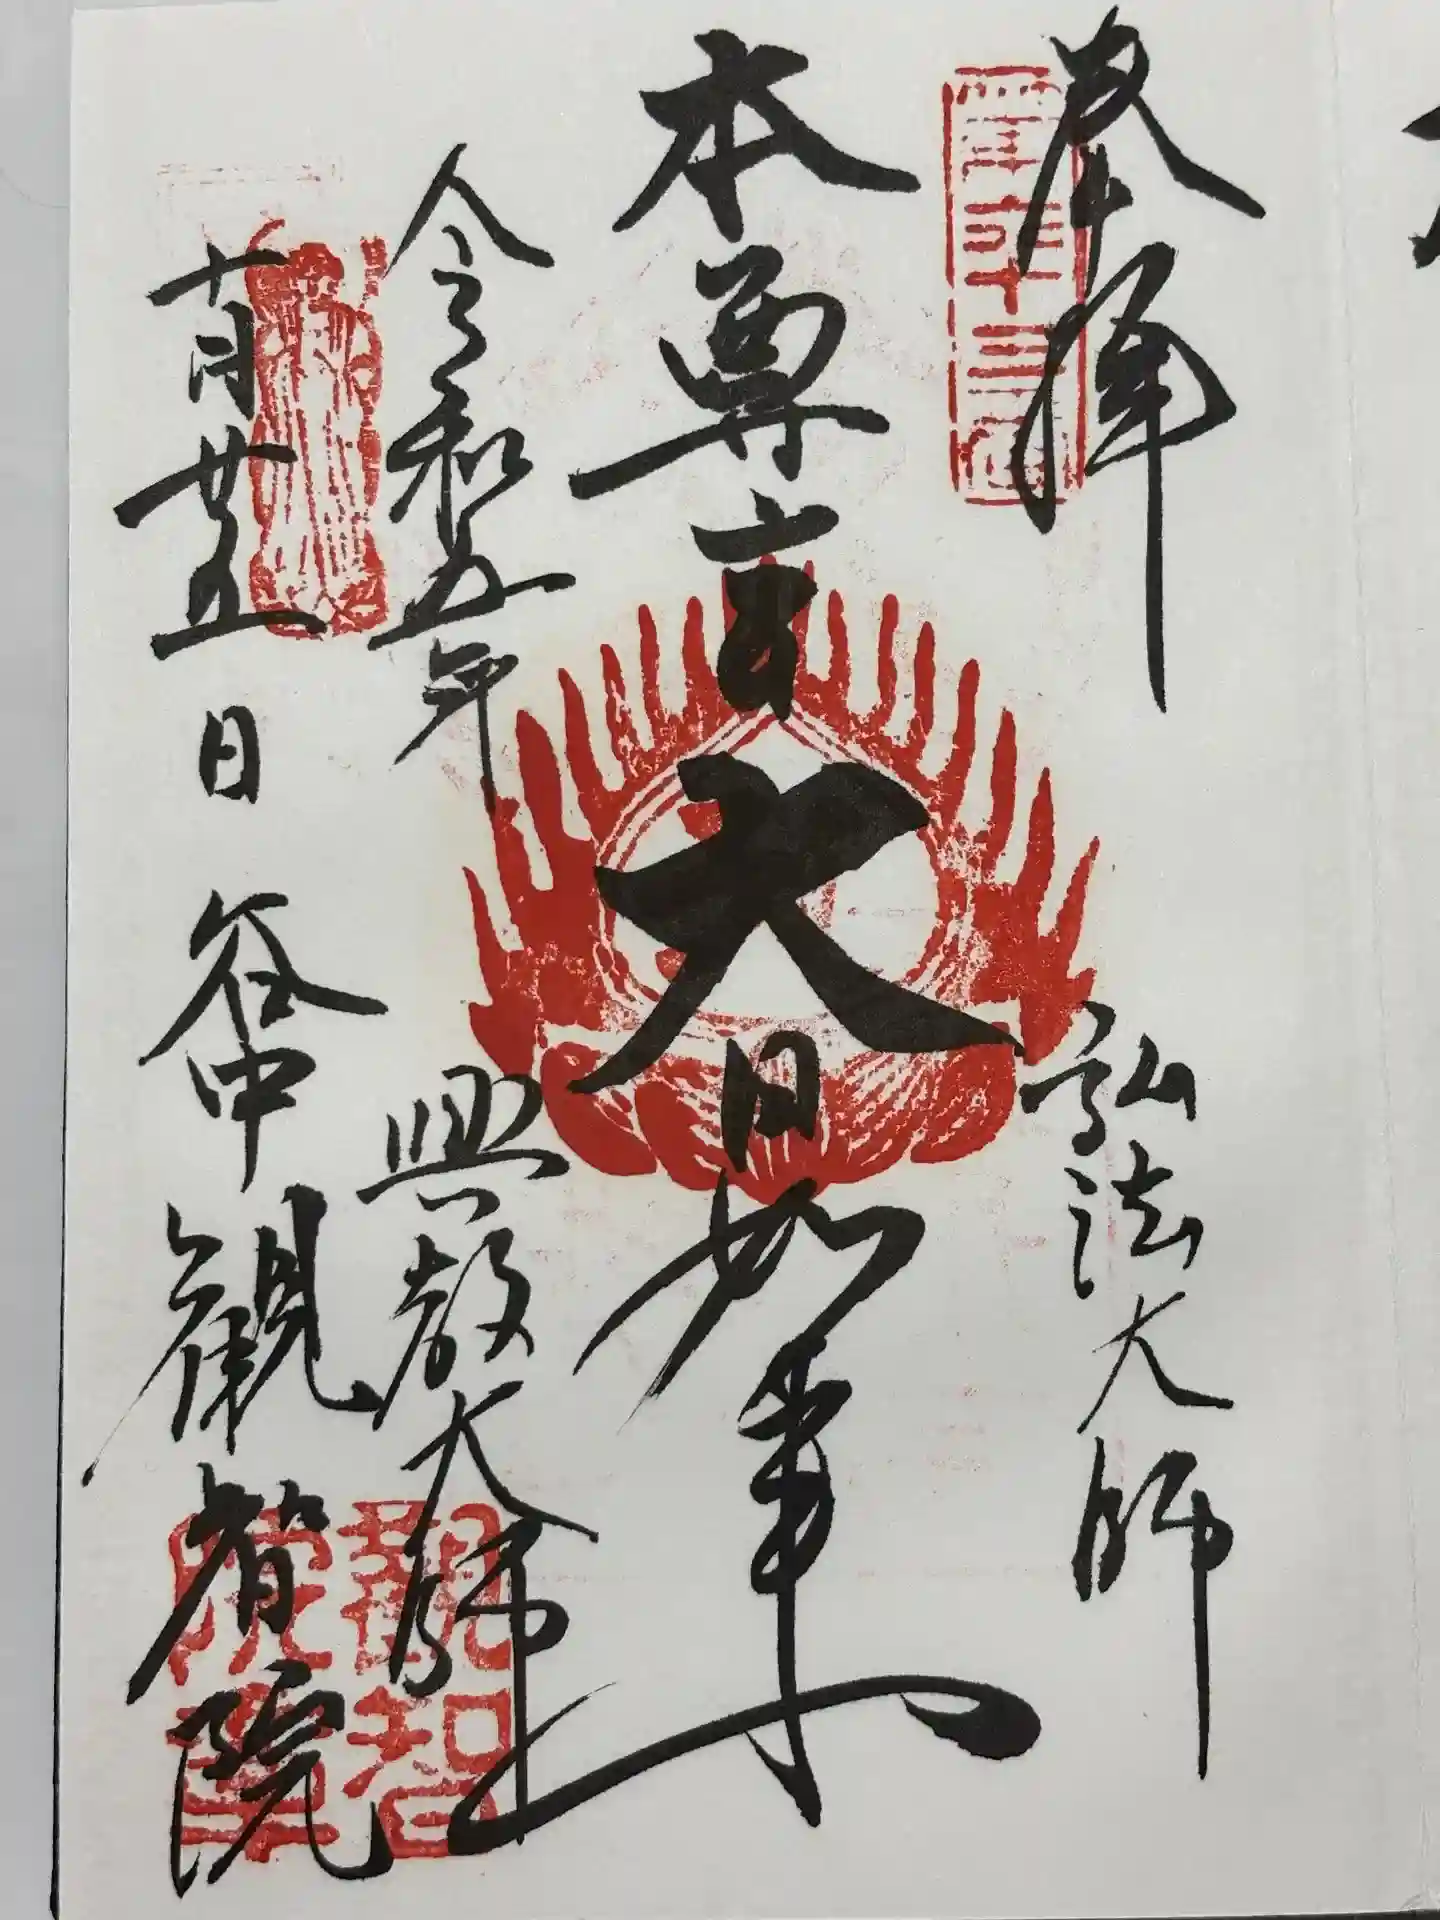 奉拝
六十三
弘法大師
本尊
大日如来
興教大師
令和五年
十月廿五日
谷中 観智院
観智
院章